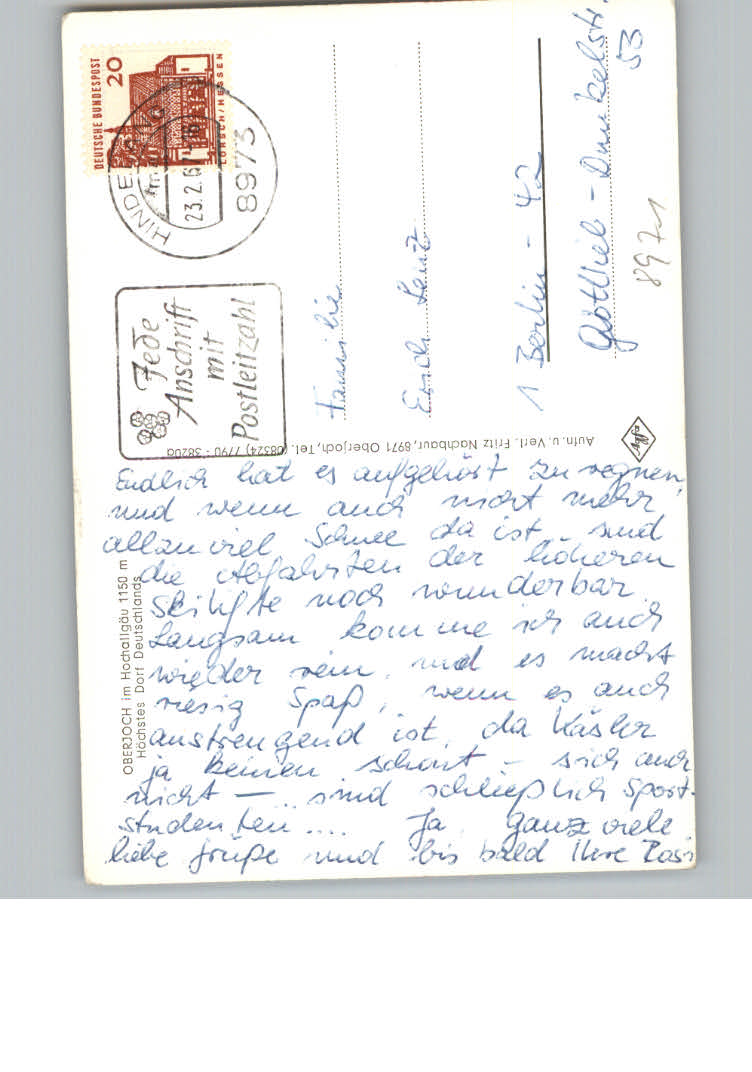 DEUTSCHE BUNDESPOST
20
LORSCH/HESSEN
HINDE
23.2.67
8973
Jede
Anschrift
mit
Postleitzahl
Familie
Erich Lenz
1 Berlin - 42
Gottlieb-Dunkelstr.
53
8971
Aufn. u. Verl. Fritz Nachbaur, 8971 Oberjoch, Tel. (08324) 7790 - 3820a
Agfa
OBERJOCH im Hochallgäu 1150 m
Höchstes Dorf Deutschlands
Endlich hat es aufgehört zu regnen,
und wenn auch nicht mehr
allzu viel Schnee da ist, sind
die Abfahrten der höheren
Skilifte noch wunderbar.
Langsam komme ich auch
wieder rein, und es macht
riesig Spaß, wenn es auch
anstrengend ist, da Käsler
ja keinen schont - sich auch
nicht - sind schließlich Sport-
studenten .... Ja, ganz viele
liebe Grüße und bis bald Ihre Rosi